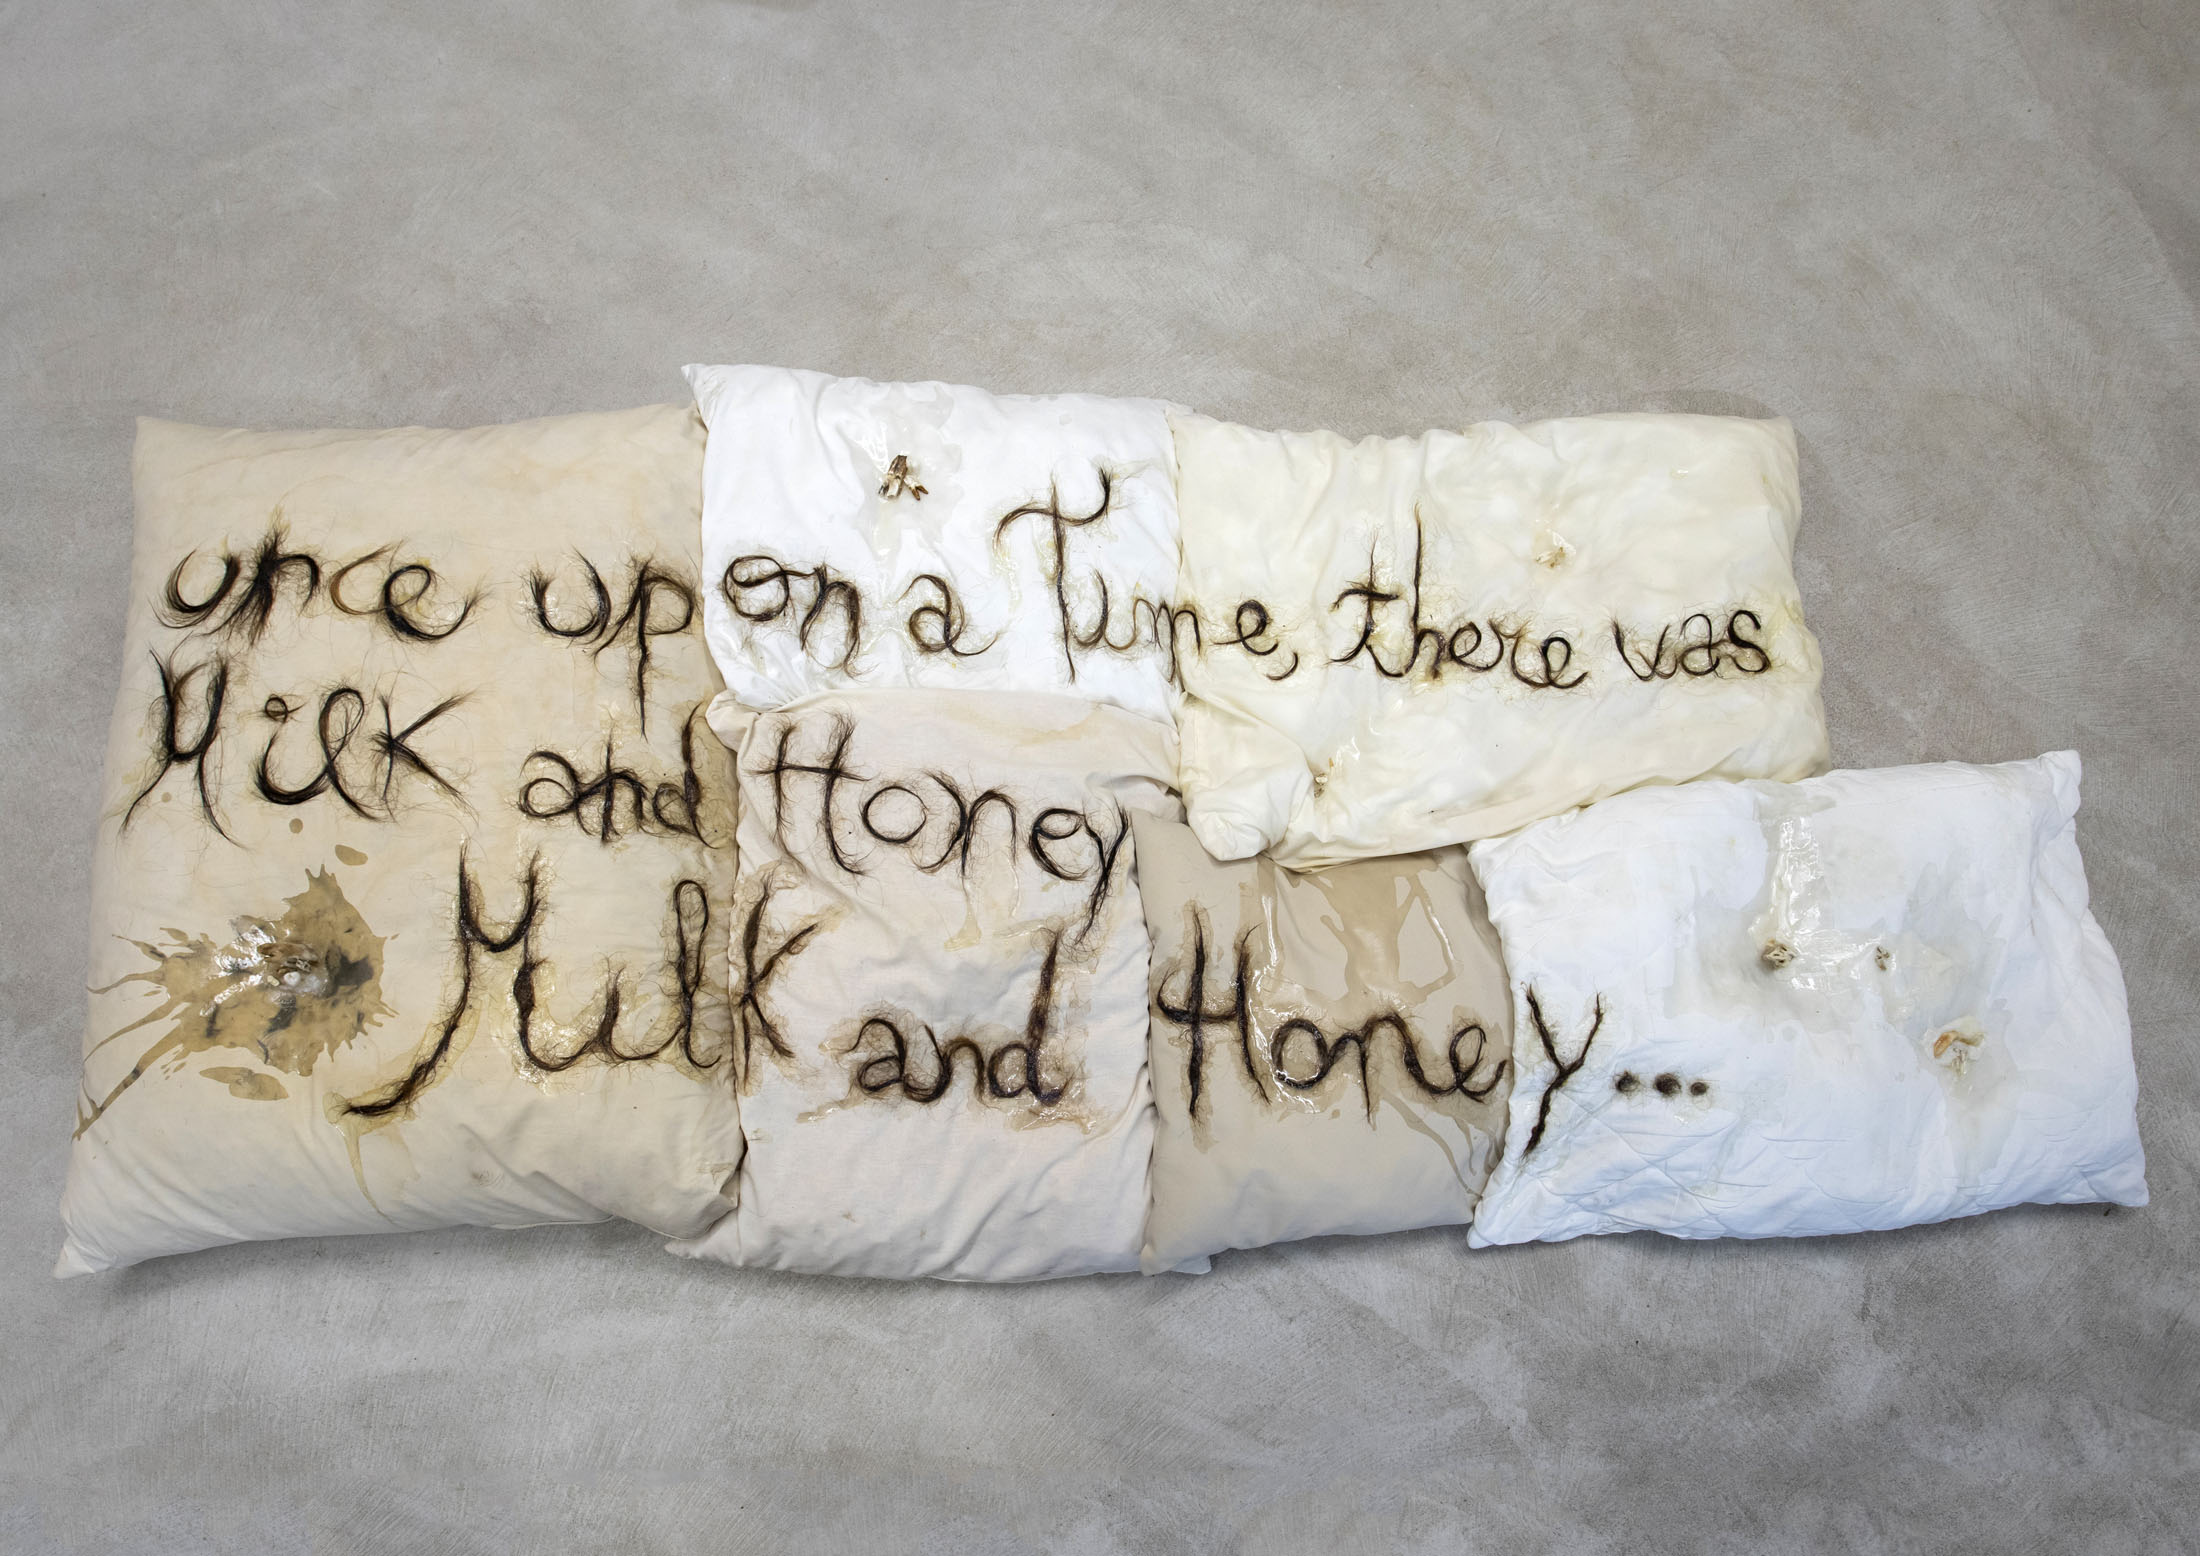 once upon a Time, there was
Milk and Honey
Milk and Honey...